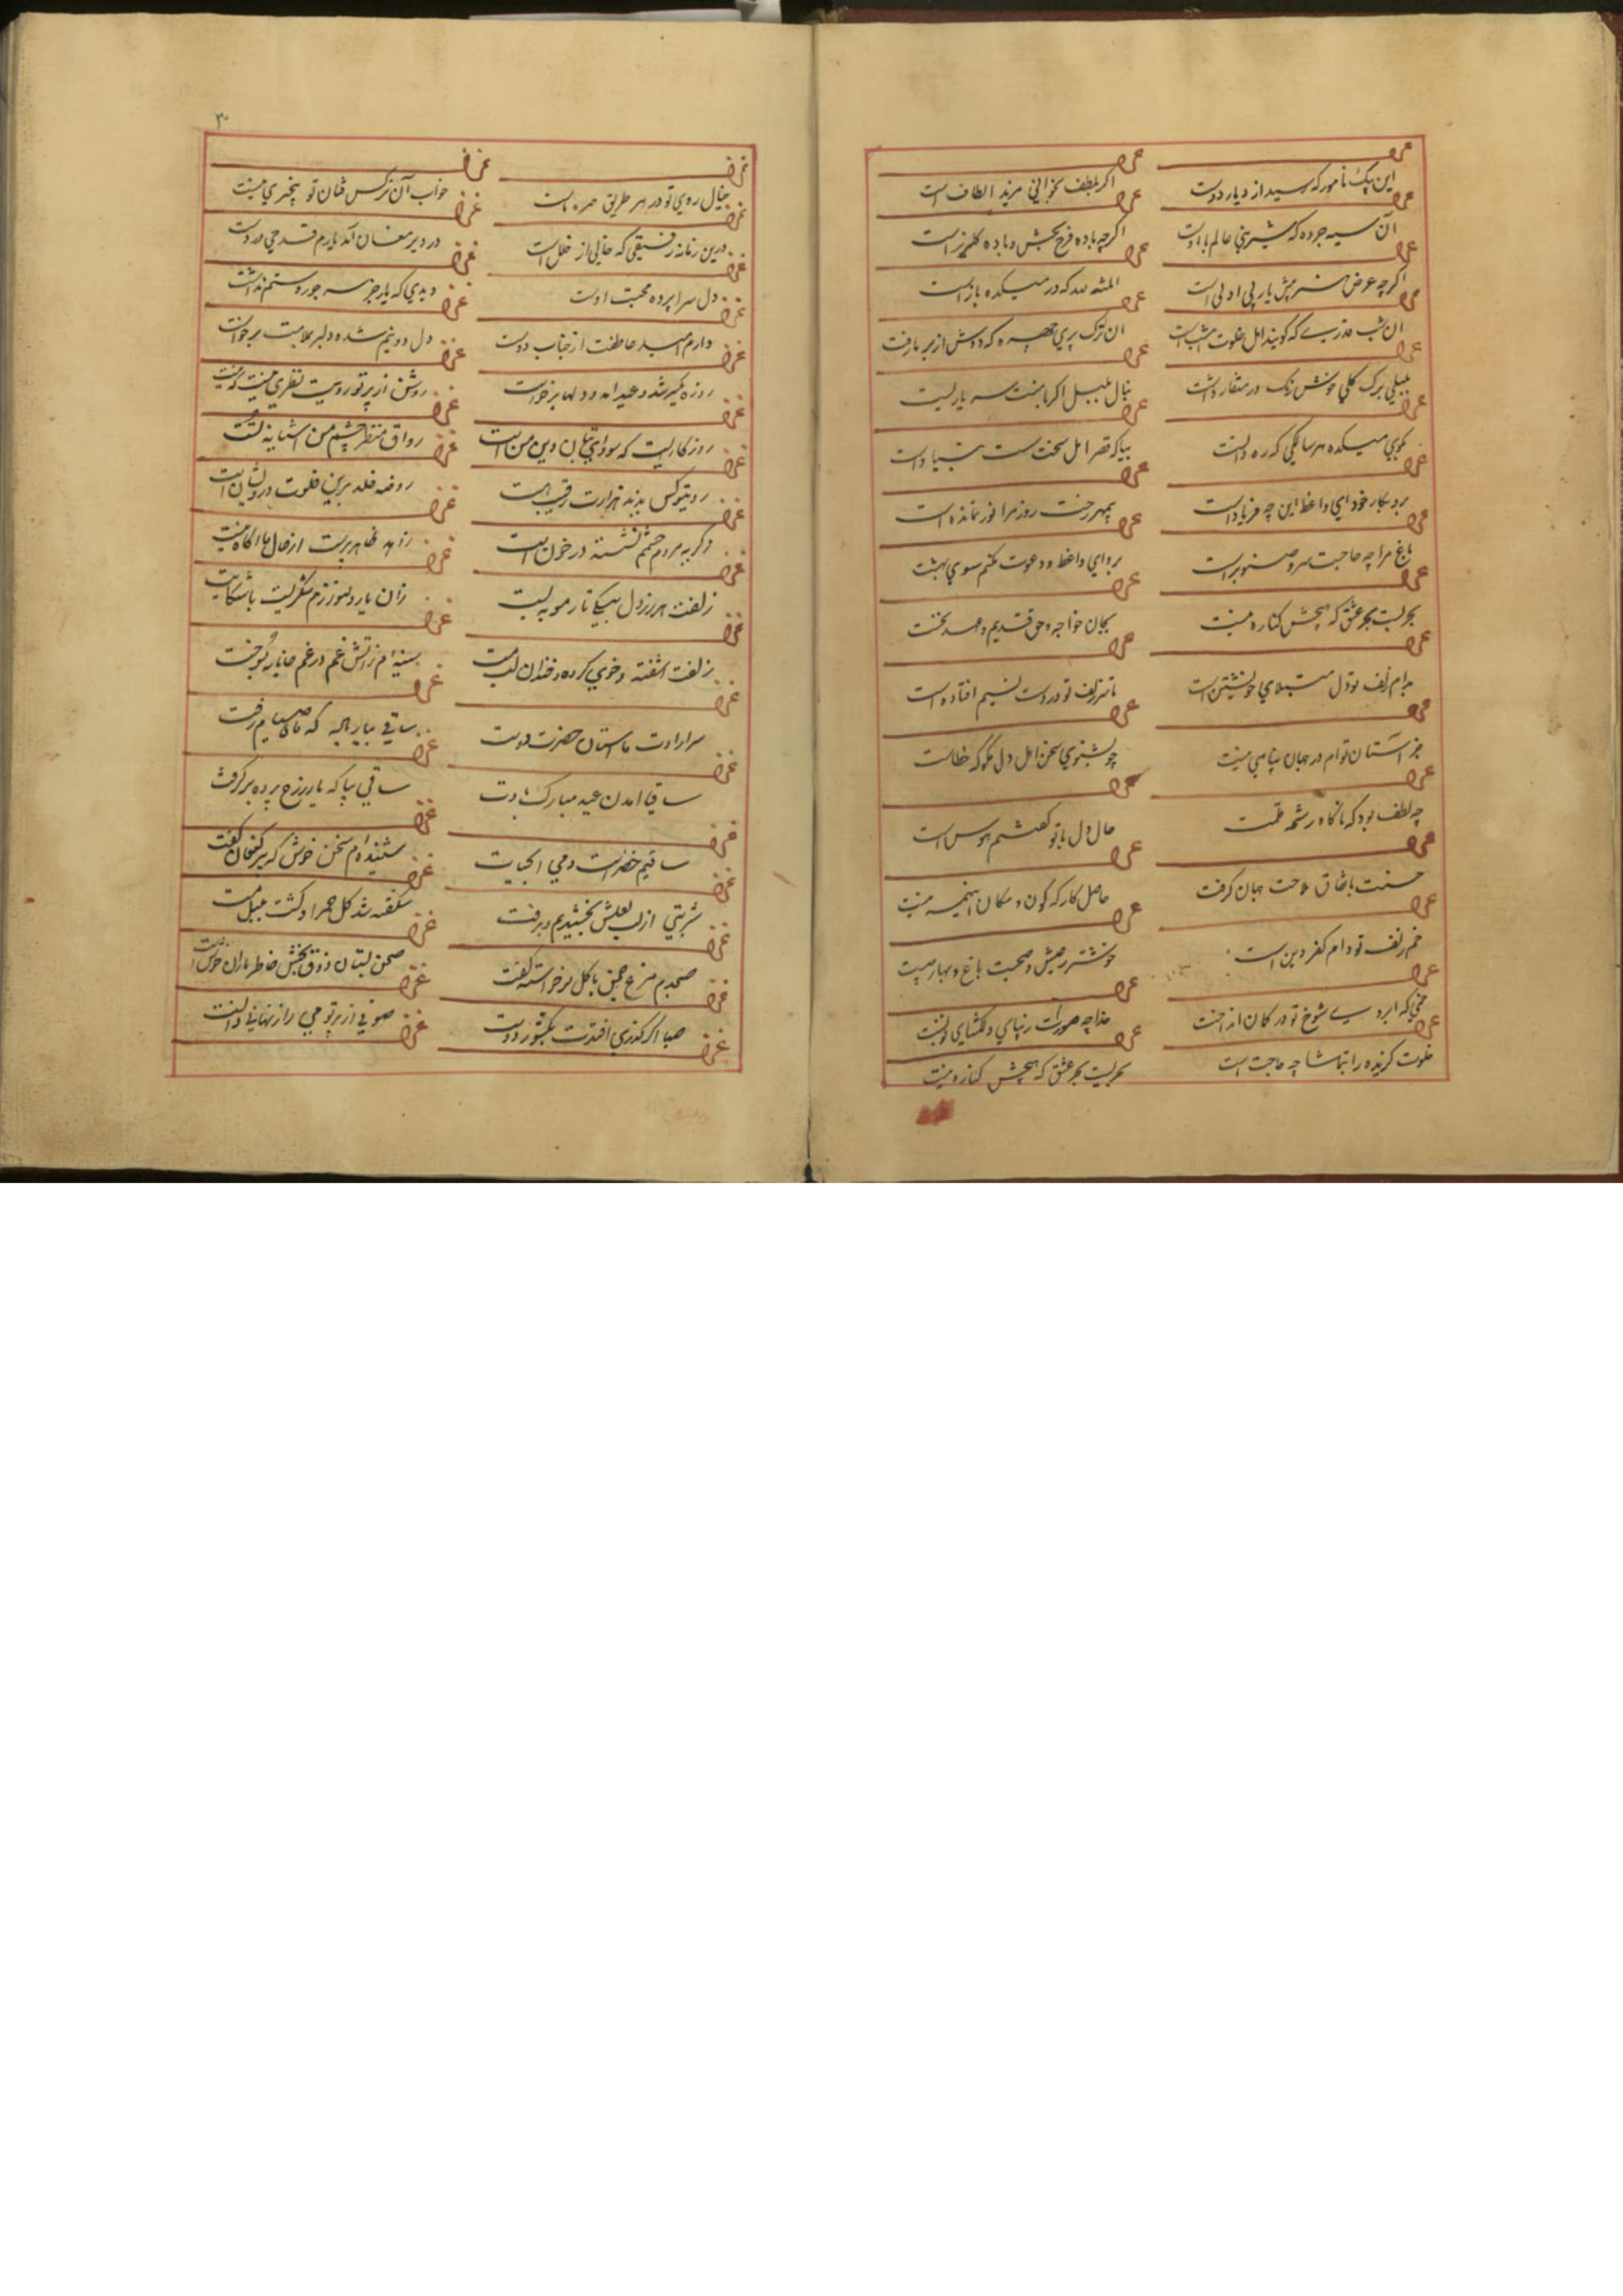 این پیک نامور که رسید از دیار دوست
اگر بلطف بخوانی مزید الطاف است
آن سیه چرده که شیرینی عالم با اوست
اگرچه باده فرح بخش و باده گلبیز است
اگرچه عرض هنر پیش یار بی ادبی است
المنته لله که در میکده باز است
ان شب قدری که گویند اهل خلوت امشب است
ان ترک پری چهره که دوش از بر ما رفت
بلبلی برک گلی خوش رنک در منقار داشت
بنال بلبل اگر با منت سر یاریست
بکوی میکده هر سالکی که ره دانست
بیا که قصر امل سخت سست بنیاد است
برو بکار خود ای واعظ این چه فریاد است
بی مهر رخت روز مرا نور نمانده است
باغ مرا چه حاجت سرو صنوبر است
برو ای واعظ و دعوت مکنم سوی بهشت
بحریست بحر عشق که هیچش کناره نیست
بجان خواجه و حق قدیم و عهد درست
بدام زلف تو دل مبتلای خویشتن است
تا سر زلف تو در دست نسیم افتاده است
جز آستان توام در جهان پناهی نیست
چو بشنوی سخن اهل دل مگو که خطاست
چه لطف بود که ناگاه رشحه قلمت
حال دل با تو گفتنم هوس است
حسنت باتفاق ملاحت جهان گرفت
حاصل کارگه کون و مکان اینهمه نیست
خم زلف تو دام کفر و دین است
خوشتر ز عیش و صحبت باغ و بهار چیست
خمی که ابروی شوخ تو در کمان انداخت
خدا چو صورت ابروی دلگشای تو بست
خلوت گزیده را بتماشا چه حاجت است
بحریست بحر عشق که هیچش کناره نیست
۳۰
خیال روی تو در هر طریق همره ماست
خواب آن نرگس فتان تو بیچیزی نیست
درین زمانه رفیقی که خالی از خلل است
در دیر مغان آمد یارم قدحی در دست
دل سراپرده محبت اوست
دیدی که یار جز سر جور و ستم نداشت
دارم امید عاطفت از جناب دوست
دل و دینم شد و دلبر بملامت برخواست
روزه یکسو شد و عید امد و دلها برخواست
روشن از پرتو رویت نظری نیست که نیست
روزگاریست که سودای بتان دین من است
رواق منظر چشم من اشیانه تست
روی تو کس ندید و هزارت رقیب است
روضه خلد برین خلوت درویشان است
ز گریه مردم چشمم نشسته در خون است
زاهد ظاهر پرست از حال ما اگاه نیست
زلفت هزار دل بیکی تار مو ببست
زان یار دلنوازم شکریست با شکایت
زلفت اشفته و خوی کرده و خندان لب مست
سینه ام ز اتش غم در غم جانانه بسوخت
سر ارادت ما و استان حضرت دوست
ساقی بیار باده که ماه صیام رفت
ساقیا امدن عید مبارک بادت
ساقی بیا که یار ز رخ پرده برگرفت
ساقیم خضر است و می اب حیات
شنیده ام سخن خوش که پیر کنعان گفت
شربتی از لب لعلش نچشیدیم و برفت
شکفته شد گل حمرا و گشت بلبل مست
صبحدم مرغ چمن با گل نوخواسته گفت
صحن بستان ذوق بخش خاطر یاران خوش است
صبا اگر گذری افتدت بکشور دوست
صوفی از پرتو می راز نهانی دانست